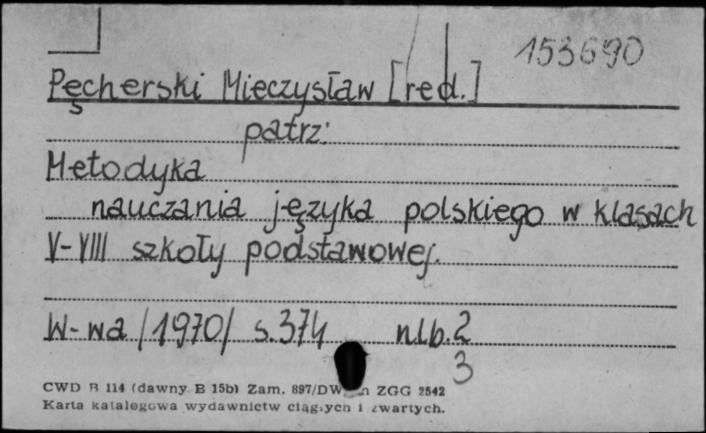 153690
Pęcherski Mieczysław [red.]
patrz:
Metodyka
nauczania języka polskiego w klasach
V-VIII szkoły podstawowej.
W-wa /1970/ s.374 nlb.2
3
CWD B 114 (dawny B 15b) Zam. 897/DW ZGG 2542
Karta katalogowa wydawnictw ciągłych i zwartych.